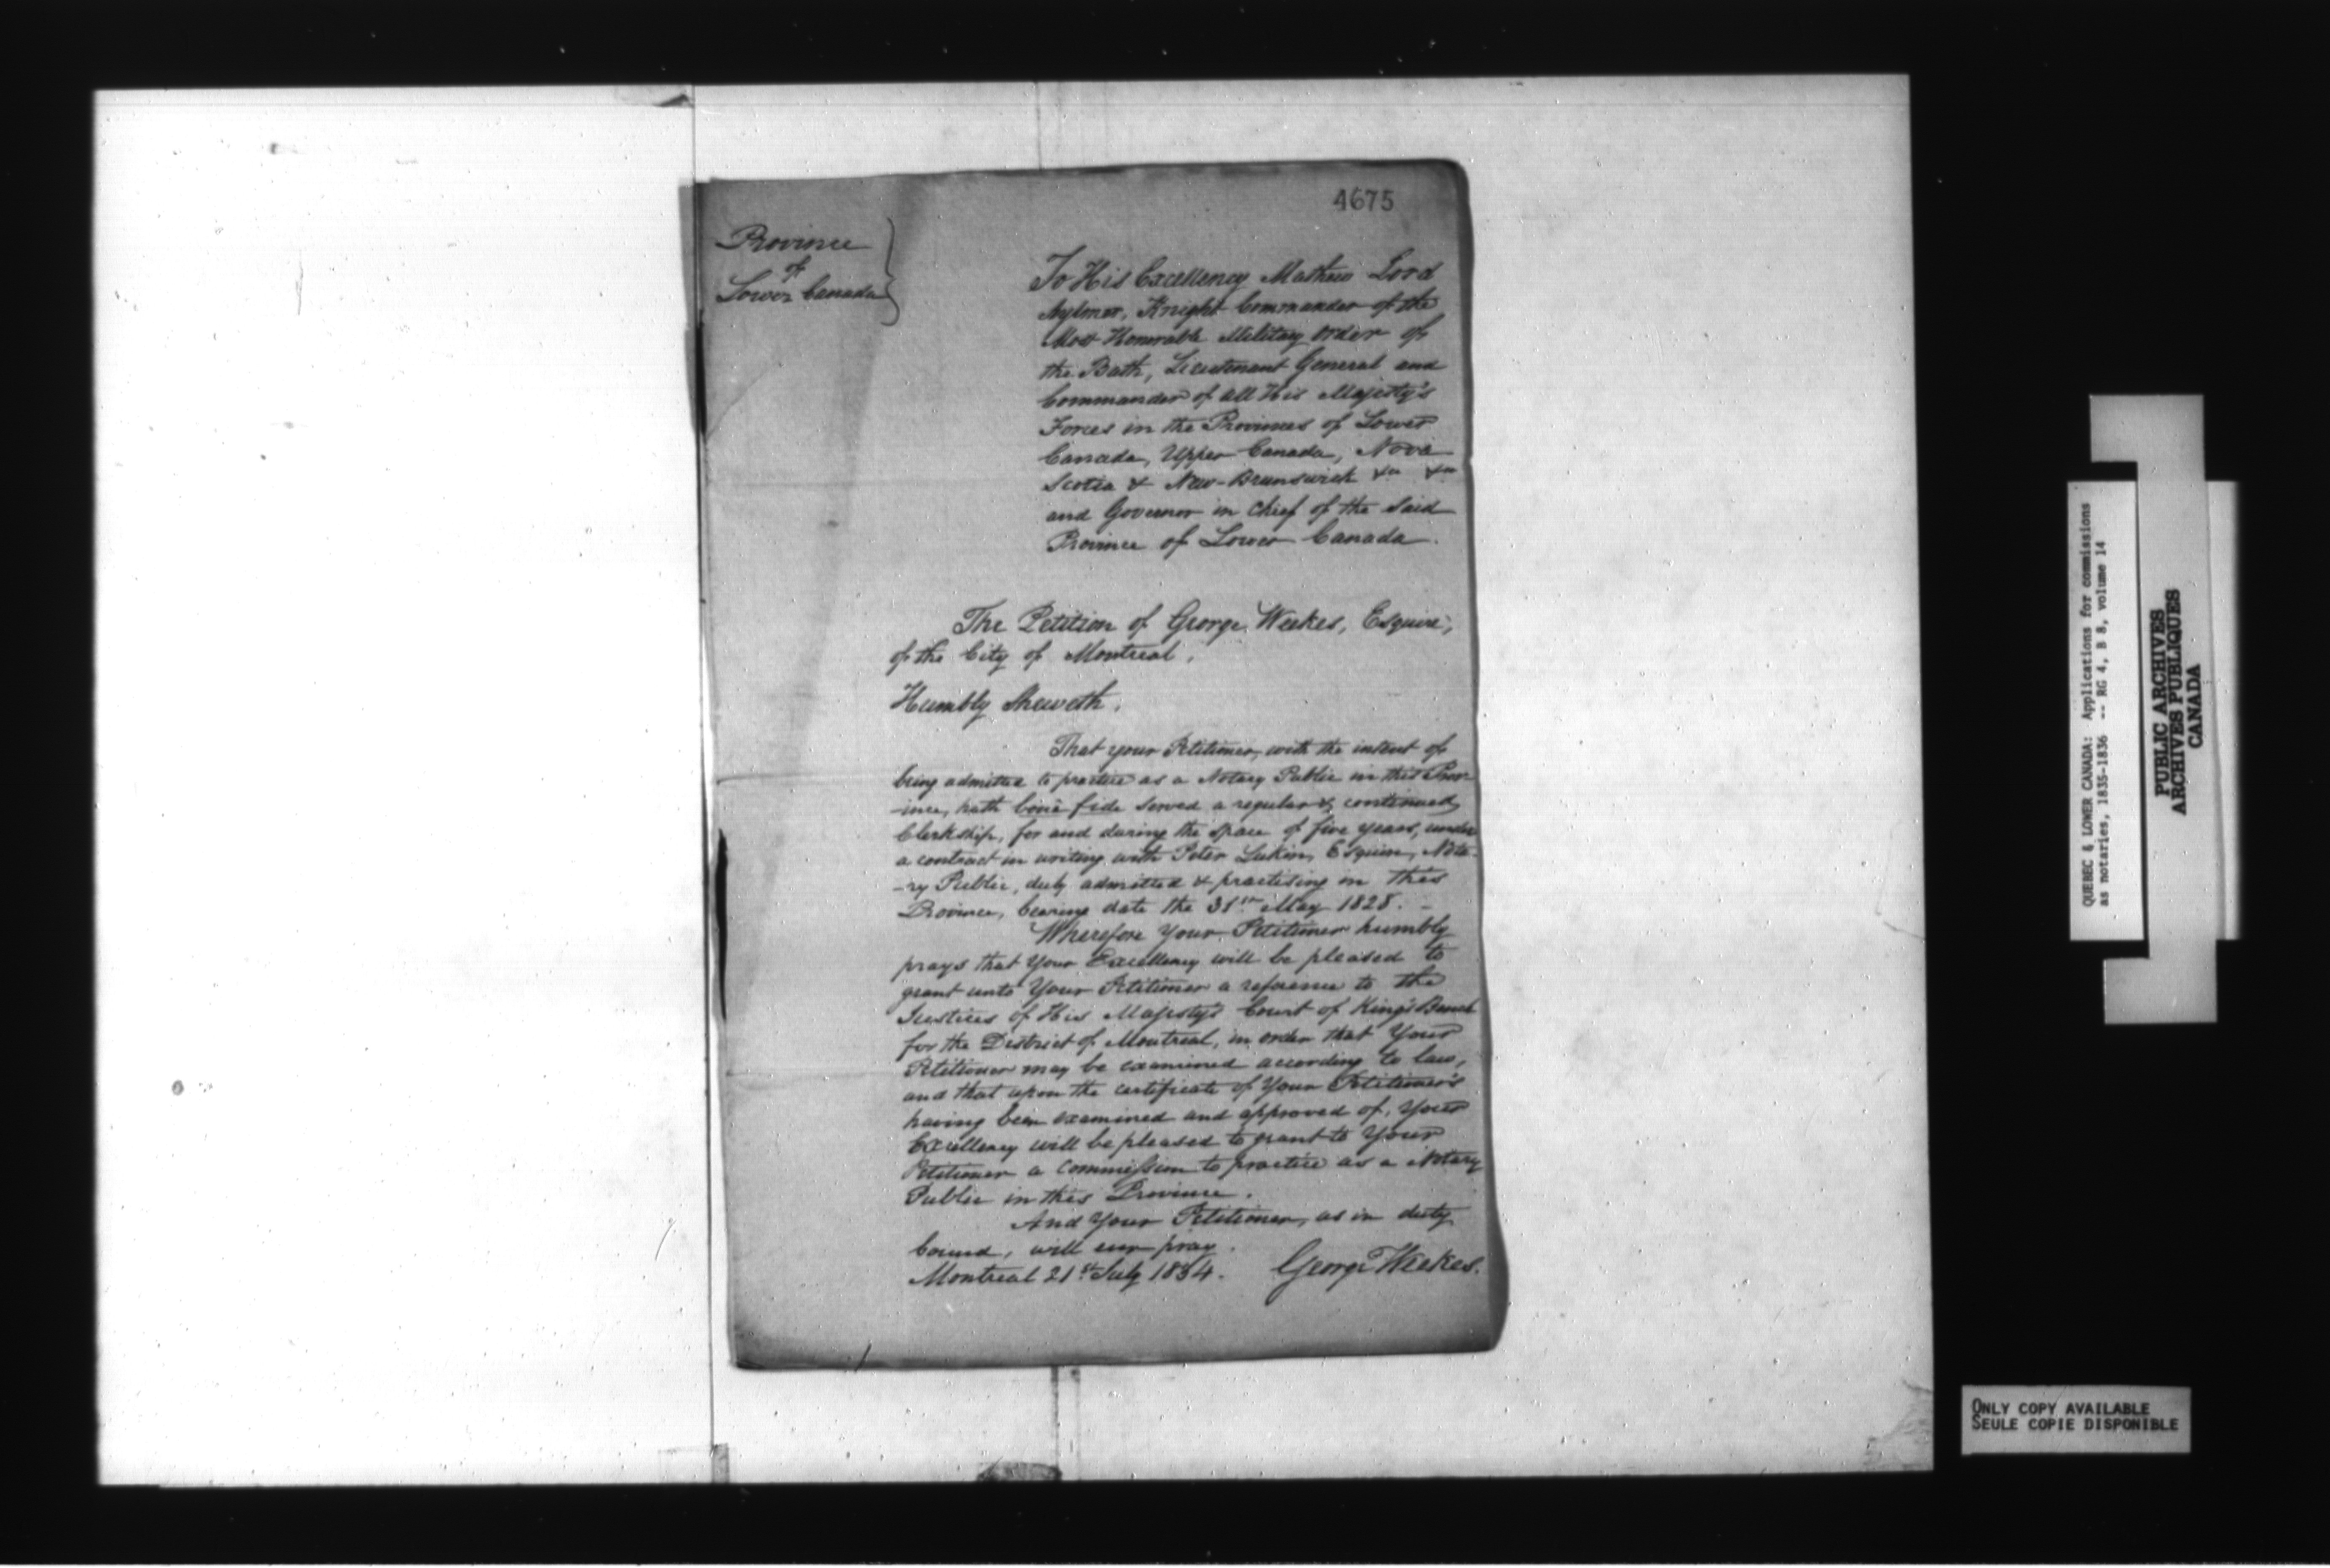 4675
Province
of
Lower Canada
To His Excellency Mathew Lord
Aylmer, Knight Commander of the
Most Honorable Military Order of
the Bath, Lieutenant General and
Commander of all His Majesty's
Forces in the Provinces of Lower
Canada, Upper Canada, Nova
Scotia & New-Brunswick &c &c
and Governor in Chief of the Said
Province of Lower Canada.
The Petition of George Weekes, Esquire,
of the City of Montreal,
Humbly Sheweth,
That your Petitioner, with the intent of
being admitted to practice as a Notary Public in this Prov-
-ince, hath bonâ fide served a regular & continued
Clerkship, for and during the space of five years, under
a contract in writing with Peter Lukin, Esquire, Nota-
-ry Public, duly admitted & practising in this
Province, bearing date the 31st May 1828. -
Wherefore Your Petitioner humbly
prays that Your Excellency will be pleased to
grant unto Your Petitioner a reference to the
Justices of His Majesty's Court of King's Bench
for the District of Montreal, in order that Your
Petitioner may be examined according to law,
and that upon the certificate of Your Petitioner's
having been examined and approved of, Your
Excellency will be pleased to grant to Your
Petitioner a commission to practice as a Notary
Public in this Province.
And Your Petitioner, as in duty
bound, will ever pray.
Montreal 21st July 1834. George Weekes.
QUEBEC & LOWER CANADA: Applications for commissions
as notaries, 1835-1836 -- RG 4, B 8, volume 14
PUBLIC ARCHIVES
ARCHIVES PUBLIQUES
CANADA
ONLY COPY AVAILABLE
SEULE COPIE DISPONIBLE